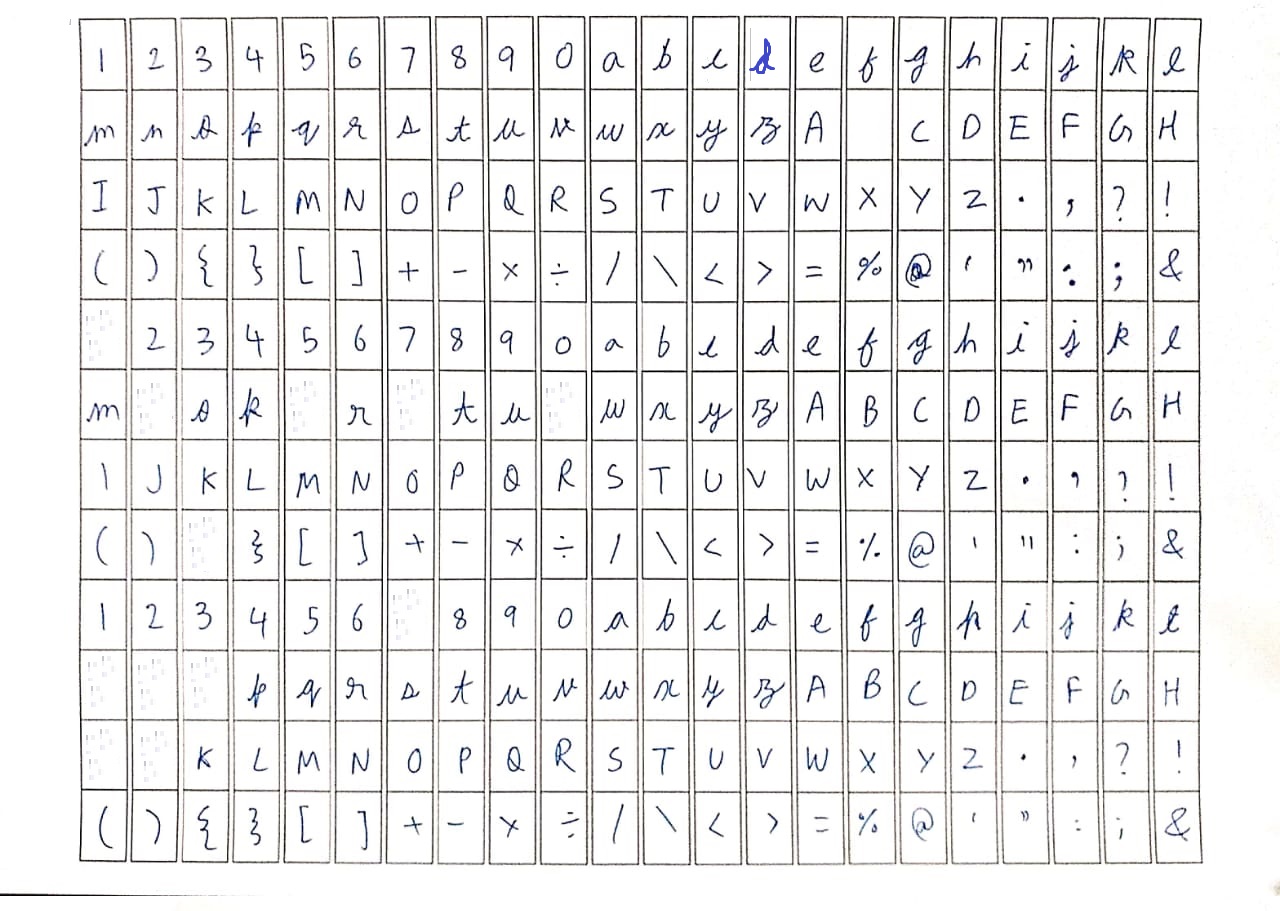 1 2 3 4 5 6 7 8 9 0 a b c d e f g h i j k l
m n o p q r s t u v w x y z A C D E F G H
I J K L M N O P Q R S T U V W X Y Z . , ? !
( ) { } [ ] + - × ÷ / \ < > = % @ ' " : ; &
2 3 4 5 6 7 8 9 0 a b c d e f g h i j k l
m o p r t u w x y z A B C D E F G H
I J K L M N O P Q R S T U V W X Y Z . , ? !
( ) } [ ] + - × ÷ / \ < > = % @ ' " : ; &
1 2 3 4 5 6 8 9 0 a b c d e f g h i j k l
p q r s t u v w x y z A B C D E F G H
K L M N O P Q R S T U V W X Y Z . , ? !
( ) { } [ ] + - × ÷ / \ < > = % @ ' " : ; &